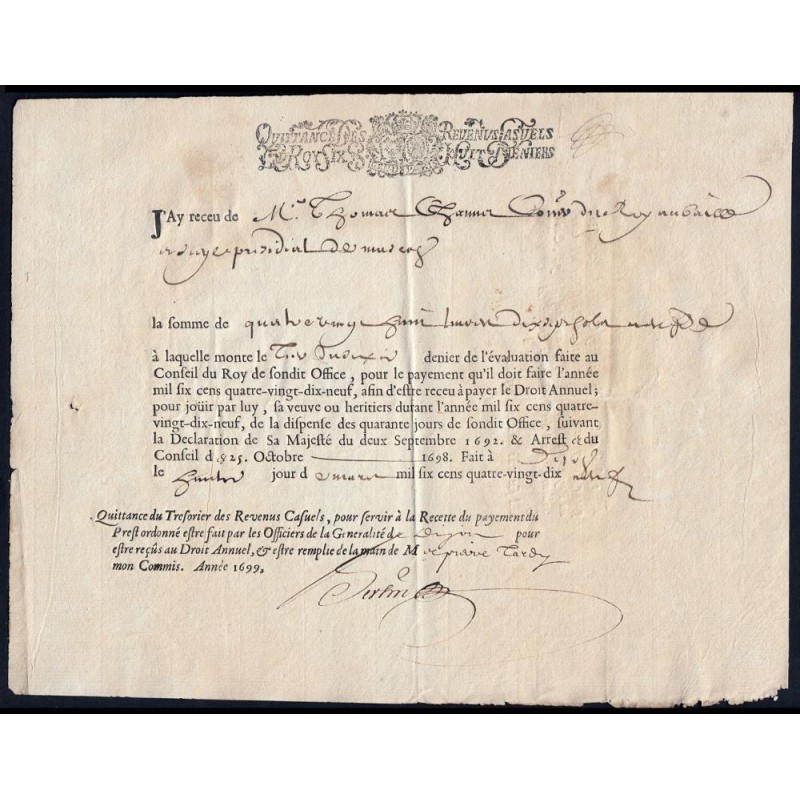 QUITTANCE DES REVENUS CASUELS
LE ROY SIX S HUIT DENIERS
J'Ay receu de Mr. Thomas du Roy au
presidial de
la somme de quatre vingt huit livres dix sept sols
à laquelle monte le denier de l'évaluation faite au
Conseil du Roy de sondit Office, pour le payement qu'il doit faire l'année
mil six cens quatre-vingt-dix-neuf, afin d'estre receu à payer le Droit Annuel;
pour joüir par luy, sa veuve ou heritiers durant l'année mil six cens quatre-
vingt-dix-neuf, de la dispense des quarante jours de sondit Office, suivant
la Declaration de Sa Majesté du deux Septembre 1692. & Arrest du
Conseil du 25. Octobre 1698. Fait à Dijon
le jour de mars mil six cens quatre-vingt-dix neuf
Quittance du Tresorier des Revenus Casuels, pour servir à la Recette du payement du
Prest ordonné estre fait par les Officiers de la Generalité de Dijon pour
estre reçûs au Droit Annuel, & estre remplie de la main de Me pierre Tardy
mon Commis. Année 1699.
Bertin